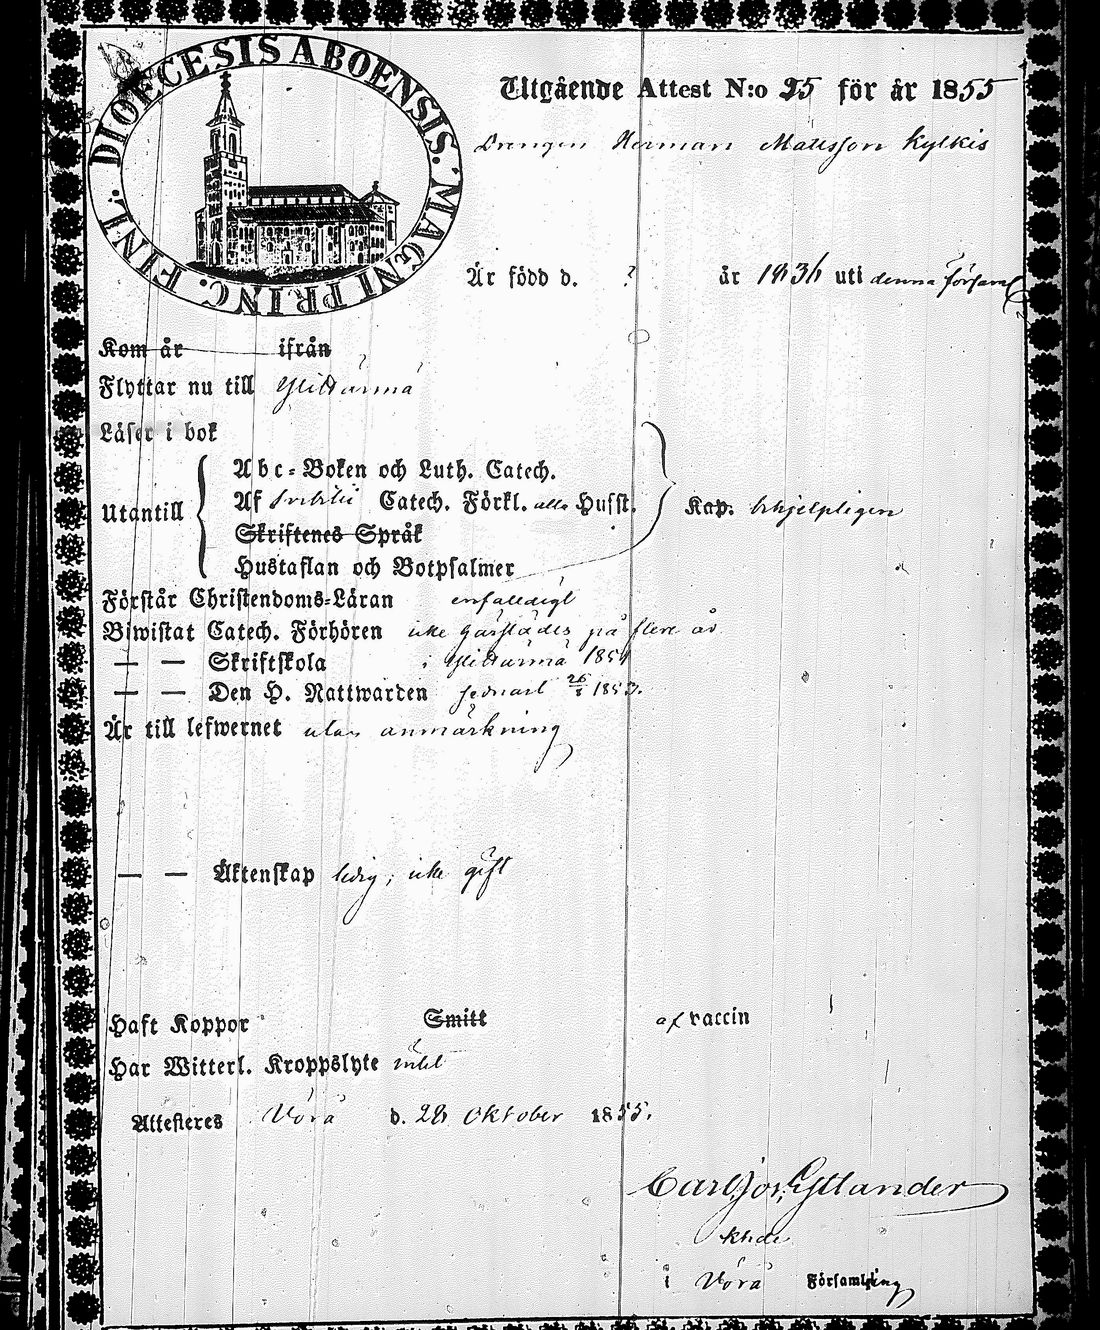 DIOECESIS ABOENSIS. MAGNI PRINC. FINL.
Utgående Attest N:o 25 för år 1855
Drengen Herman Mattsson Kylkis
Är född d. ? år 1836 uti denna församl
Kom år ifrån
Flyttar nu till Ylihärmä
Läser i bok
Utantill
Abc-Boken och Luth. Catech.
Af Svebilii Catech. Förkl. alla Husst.
Skriftenes Språk
Hustaflan och Botpsalmer
Kap. behjelpligen
Förstår Christendoms-Läran enfaldigt
Biwistat Catech. Förhören icke härstädes på flere år
— — Skriftskola i Ylihärmä 1854
— — Den H. Nattwarden sednast 26/8 1853.
Är till lefwernet utan anmärkning
— — Äktenskap ledig, icke gift
Haft Koppor Smitt af vaccin
Har Witterl. Kroppslyte intet
Attesteres Vörå d. 28 Oktober 1855.
Carl Jos. Gyllander
khde
i Vörå Församling